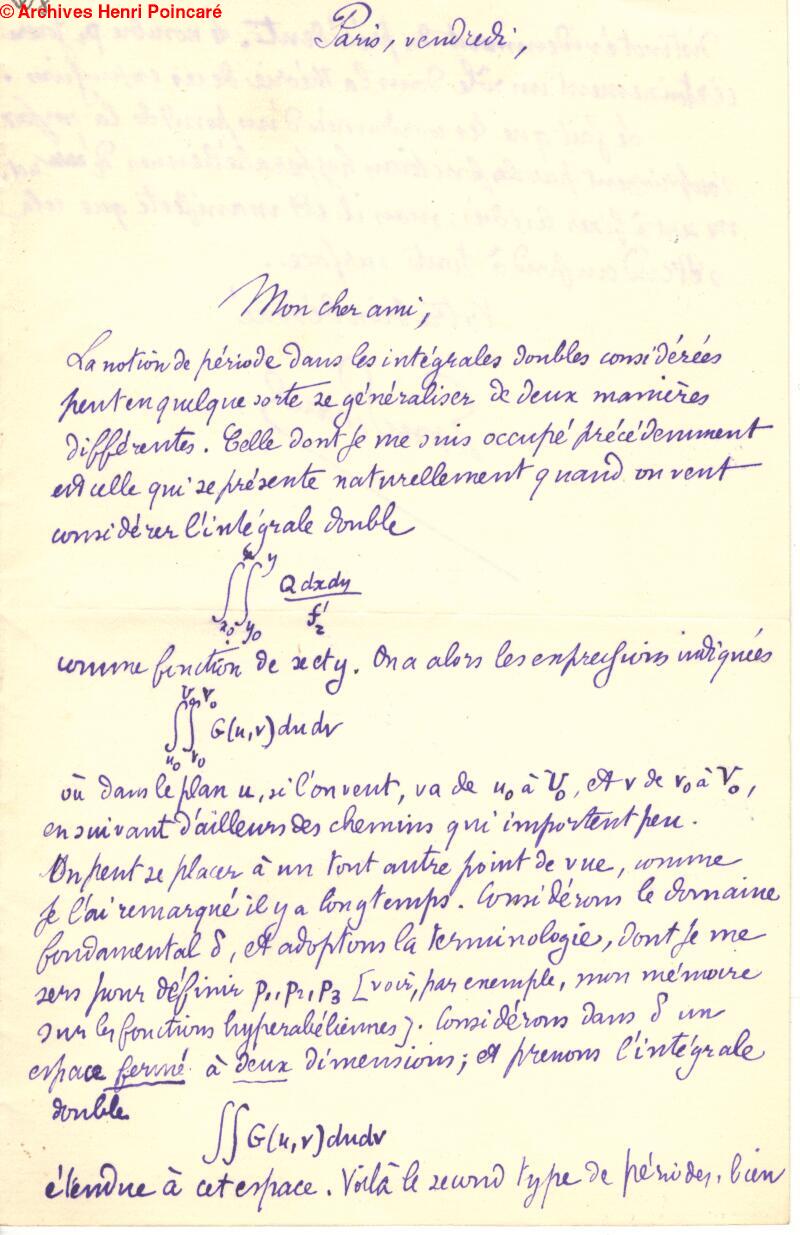 © Archives Henri Poincaré
Paris, vendredi,
Mon cher ami,
La notion de période dans les intégrales doubles considérées
peut en quelque sorte se généraliser de deux manières
différentes. Celle dont je me suis occupé précédemment
est celle qui se présente naturellement quand on veut
considérer l'intégrale double
∫_{x_0}^{x} ∫_{y_0}^{y} Q dx dy / f'_z
comme fonction de x et y. On a alors les expressions indiquées
∫_{u_0}^{U_0} ∫_{v_0}^{V_0} G(u,v) du dv
où dans le plan u, si l'on veut, va de u_0 à U_0, et v de v_0 à V_0,
en suivant d'ailleurs des chemins qui importent peu.
On peut se placer à un tout autre point de vue, comme
je l'ai remarqué il y a longtemps. Considérons le domaine
fondamental δ, et adoptons la terminologie, dont je me
sers pour définir p_1, p_2, p_3 [voir, par exemple, mon mémoire
sur les fonctions hyperabéliennes]. Considérons dans δ un
espace fermé à deux dimensions ; et prenons l'intégrale
double
∫∫ G(u,v) du dv
étendue à cet espace. Voilà le second type de périodes, bien